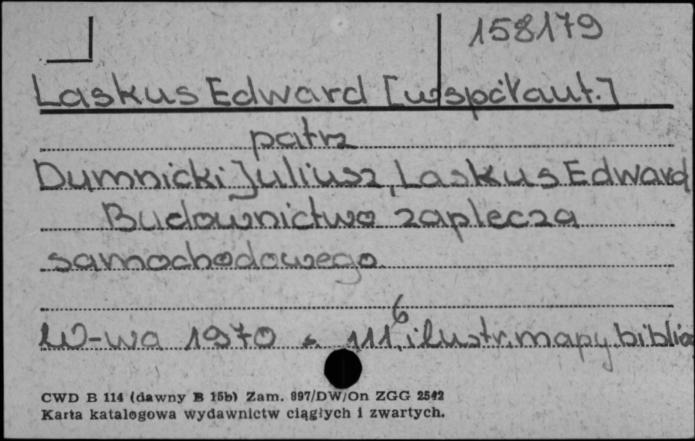 158179
Laskus Edward [współaut.]
patrz
Dumnicki Juliusz, Laskus Edward
Budownictwo zaplecza
samochodowego
W-wa 1970 s. 111, 6 ilustr. mapy. biblio
CWD B 114 (dawny B 15b) Zam. 897/DW/On ZGG 2542
Karta katalogowa wydawnictw ciągłych i zwartych.